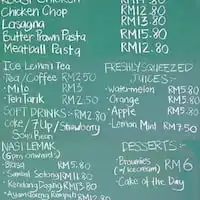 Chicken Chop RM12.80
Lasagna RM13.80
Butter Prawn Pasta RM15.80
Meatball Pasta RM12.80
Ice Lemon Tea
• Tea/Coffee RM2.50
• Milo RM3
• Teh Tarik RM2.50
SOFT DRINKS - RM2.80
Coke / 7Up / Strawberry
Soya Bean
NASI LEMAK
(6pm onwards)
• Biasa RM5.80
• Sambal Sotong RM11.80
• Rendang Daging RM13.80
• Ayam Goreng Rempah RM12.80
FRESHLY SQUEEZED
JUICES :-
• Watermelon RM5.80
• Orange RM5.80
• Apple RM5.80
• Lemon Mint RM7.50
DESSERTS :-
• Brownies RM6
(w/ icecream)
• Cake of the Day